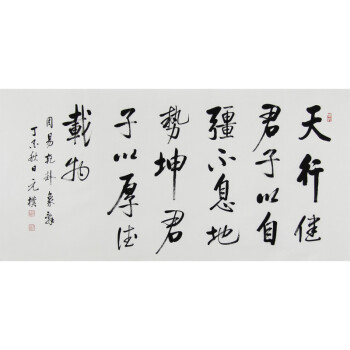 天行健
君子以自
疆不息地
勢坤君
子以厚德
載物
周易乾坤象辞
秋日元